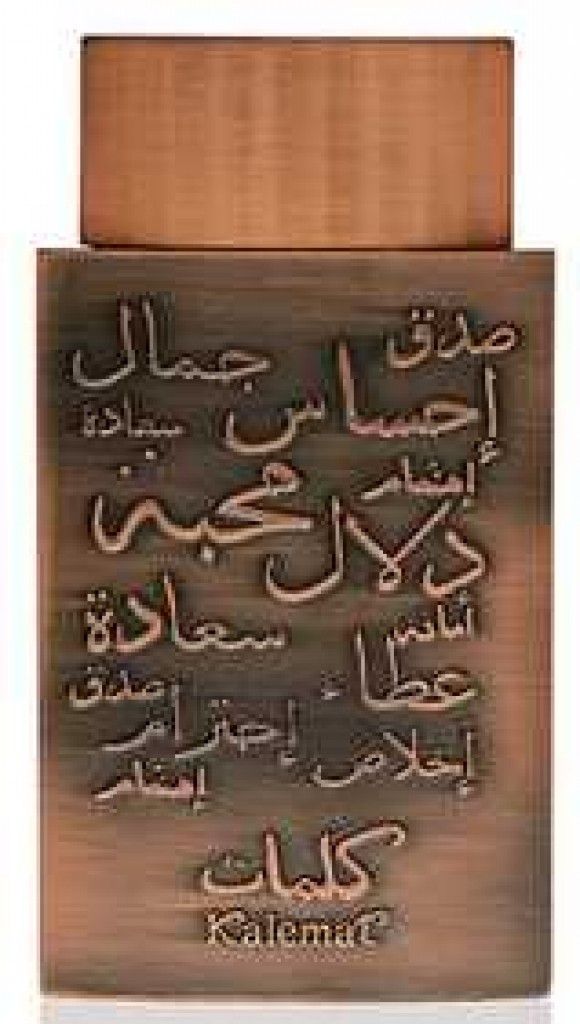 صدق جمال
إحساس
سعادة
إهتمام
محبة
دلال
أماني
سعادة
عطاء
صدق
إحترام
إخلاص
إهتمام
كلمات
Kalemat